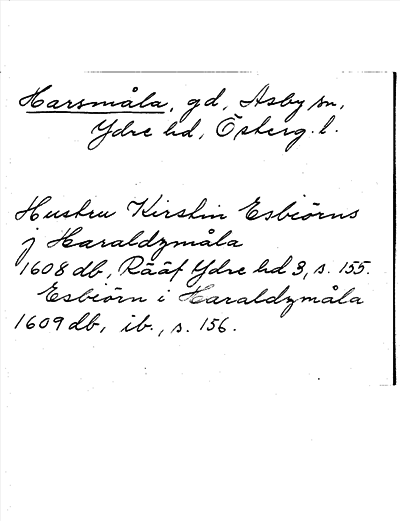 Harsmåla, gd, Asby sn,
Ydre hd, Österg. l.
Hustru Kirstin Esbiörns
j Haraldzmåla
1608 db, Rääf Ydre hd 3, s. 155.
Esbiörn i Haraldzmåla
1609 db, ib., s. 156.